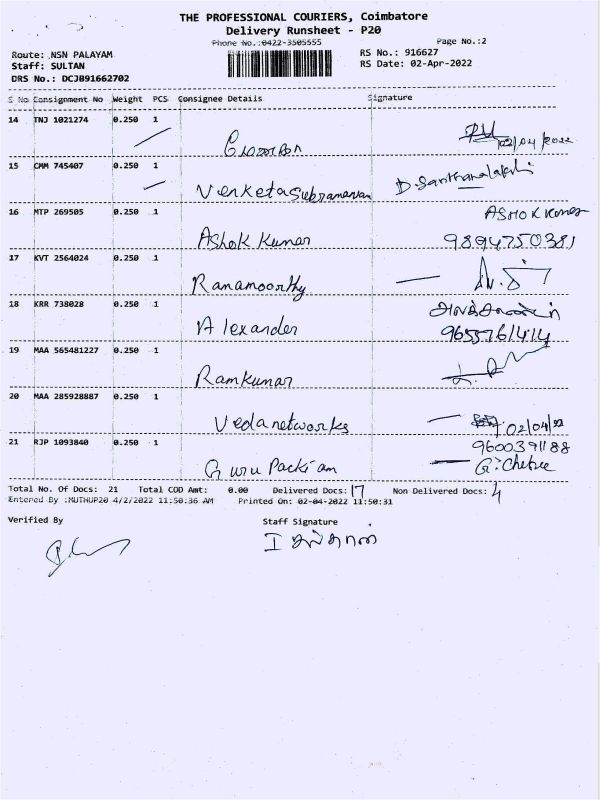 THE PROFESSIONAL COURIERS, Coimbatore
Delivery Runsheet - P20
Phone No.:0422-3505555
Page No.:2
Route: NSN PALAYAM
Staff: SULTAN
DRS No.: DCJ891662702
RS No.: 916627
RS Date: 02-Apr-2022
S No Consignment No Weight PCS Consignee Details Signature
14 TNJ 1021274 0.250 1
02/04/2022
15 CMM 745407 0.250 1
Venketasubramanian D. Santhanalakshi
16 MTP 269505 0.250 1 ASHOK Kumar
Ashok Kumar 9894750381
17 KVT 2564024 0.250 1
Ramamoorthy
18 KRR 738028 0.250 1
Alexander 9655761414
19 MAA 565481227 0.250 1
Ramkumar
20 MAA 285928887 0.250 1
Vedanetworks 02/04/22
21 RJP 1093840 0.250 1 9600391188
Guru Packiam
Total No. Of Docs: 21 Total COD Amt: 0.00 Delivered Docs: 17 Non Delivered Docs: 4
Entered By :MUTHUP20 4/2/2022 11:50:36 AM Printed On: 02-04-2022 11:50:31
Verified By Staff Signature